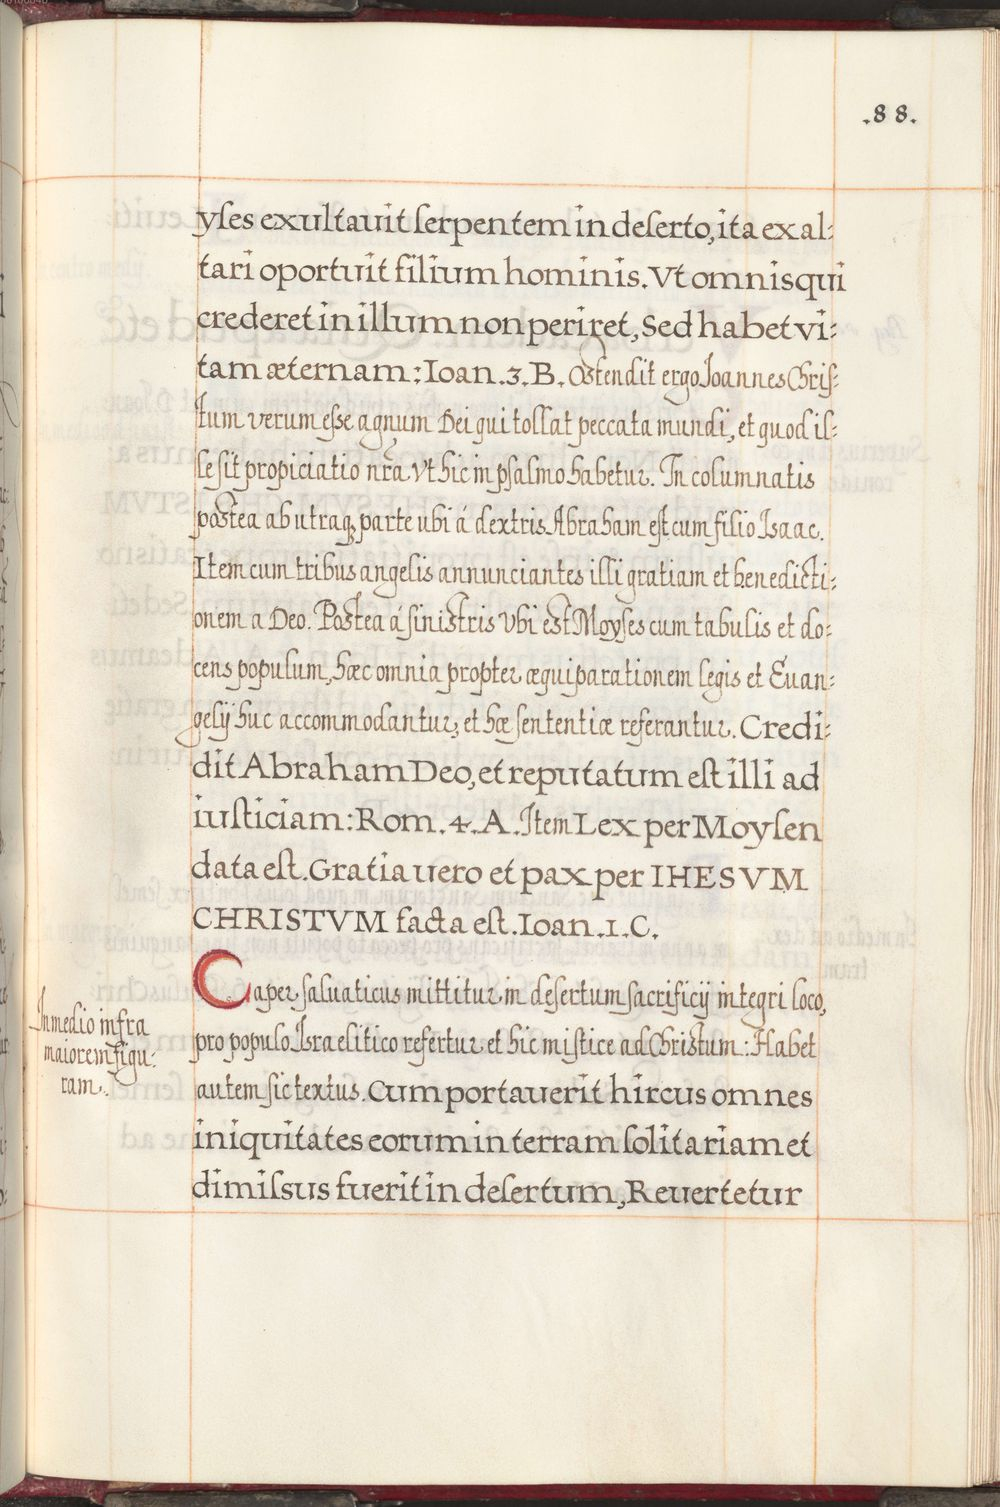 .88.
yſes exultauit ſerpentem in deſerto, ita exal:
tari oportuit filium hominis. Vt omnis qui
crederet in illum non periret, Sed habet vi:
tam æternam: Ioan .3. B. Oſtendit ergo Joannes Chriſ:
tum verum eſſe agnum Dei qui tollat peccata mundi, et quod il:
le ſit propiciatio nrã. Vt hic in pſalmo habetur. In columnatis
poſtea ab utraq; parte ubi á dextris Abraham eſt cum filio Isaac.
Item cum tribus angelis annunciantes illi gratiam et benedicti:
onem a Deo. Poſtea á ſiniſtris Vbi eſt Moyſes cum tabulis et do:
cens populum, hæc omnia propter æquiparationem legis et Euan:
gelÿ huc accommodantur, et hæ ſententiæ referantur. Credi:
dit Abraham Deo, et reputatum eſt illi ad
iuſticiam: Rom. 4. A. Item Lex per Moyſen
data eſt. Gratia vero et pax per IHESVM
CHRISTVM facta eſt. Ioan. 1. C.
Caper ſaluaticus mittitur in deſertum ſacrificÿ integri loco,
pro populo Israelitico refertur et hic miſtice ad Chriſtum: Habet
autem ſic textus. Cum portauerit hircus omnes
iniquitates eorum in terram ſolitariam et
dimiſsus fuerit in deſertum, Reuertetur
In medio infra
maiorem figu:
ram.